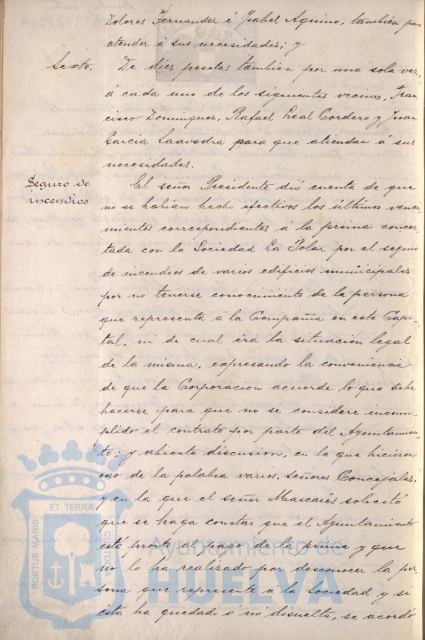 Dolores Fernandez é Isabel Aquino, tambien para
atender á sus necesidades; y
Sexto. De diez pesetas tambien por una sola vez,
á cada uno de los siguientes vecinos, Fran-
cisco Dominguez, Rafael Leal Cordero y Juan
Garcia Saavedra para que atiendan á sus
necesidades.
Seguro de
incendios
El señor Presidente dió cuenta de que
no se habian hecho efectivos los últimos venci-
mientos correspondientes á la prima concer-
tada con la Sociedad La Polar por el seguro
de incendios de varios edificios municipales
por no tenerse conocimiento de la persona
que representa á la Compañia en esta Capi-
tal, ni de cual era la situacion legal
de la misma, expresando la conveniencia
de que la Corporacion acuerde lo que debe
hacerse para que no se considere incum-
plido el contrato por parte del Ayuntamien-
to; y abierta discusion, en la que hicieron
uso de la palabra varios señores Concejales,
y en la que el señor Mascarós solicitó
que se haga constar que el Ayuntamiento
está pronto al pago de la prima y que
no lo ha realizado por desconocer la per-
sona que represente á la Sociedad y si
ésta ha quedado ó nó disuelta, se acordó
PORTUS MARIS ET TERRAE CUSTODIO
Ayuntamiento de
HUELVA